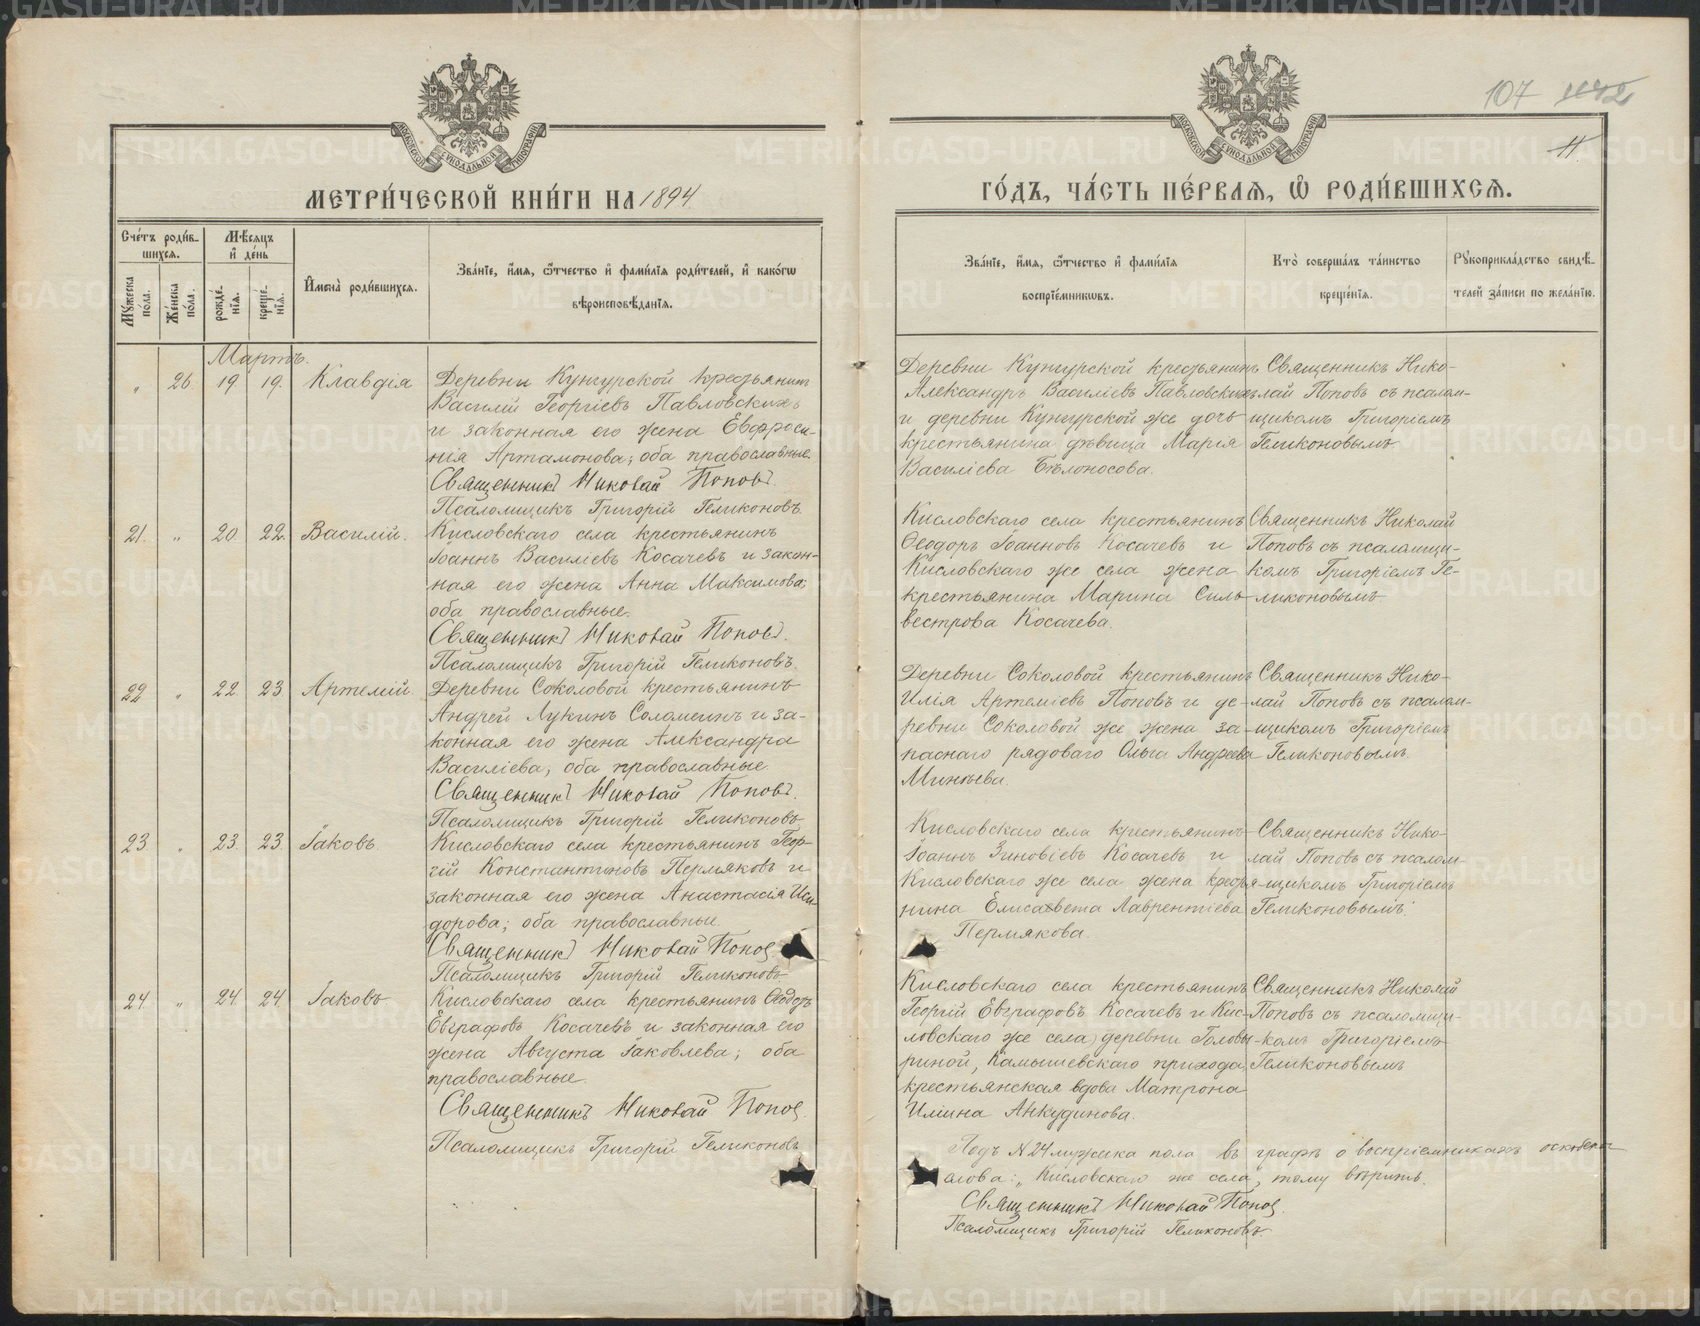 107
11
МОСКОВСКОЙ СѴНОДАЛЬНОЙ ТИПОГРАФІИ
МОСКОВСКОЙ СѴНОДАЛЬНОЙ ТИПОГРАФІИ
МЕТРИ́ЧЕСКОЙ КНИ́ГИ НА 1894
ГО́ДЪ, ЧА́СТЬ ПЕ́РВАЯ, Ѽ РОДИ́ВШИХСЯ.
Сче́тъ роди́в-
шихся.
Мѣ́сяцъ
и҆ де́нь
Му́жеска
по́ла.
Же́нска
по́ла.
рожде́-
нія.
креще́-
нія.
И҆мена̀ роди́вшихся.
Зва́ніе, и҆́мя, ѻ҆́тчество и҆ фами́лія роди́телей, и҆ како́гѡ
вѣроисповѣ́данія.
Зва́ніе, и҆́мя, ѻ҆́тчество и҆ фами́лія
воспріе́мниковъ.
Кто̀ соверша́лъ та́инство
креще́нія.
Рꙋкоприкла́дство свидѣ́-
телей за́писи по жела́нію.
Мартъ.
„ 26. 19 19. Клавдія
Деревни Кунгурской крестьянинъ
Василій Георгіевъ Павловскихъ
и законная его жена Евфроси-
нія Артамонова; оба православные.
Священникъ Николай Поповъ.
Псаломщикъ Григорій Геликоновъ.
Деревни Кунгурской крестьянинъ
Александръ Василіевъ Павловскихъ
и деревни Кунгурской же дочь
крестьянина дѣвица Марія
Василіева Бѣлоносова.
Священникъ Нико-
лай Поповъ съ псалом-
щикомъ Григоріемъ
Геликоновымъ
21. „ 20. 22. Василій.
Кисловскаго села крестьянинъ
Іоаннъ Василіевъ Косачевъ и закон-
ная его жена Анна Максимова;
оба православные.
Священникъ Николай Поповъ.
Псаломщикъ Григорій Геликоновъ.
Кисловскаго села крестьянинъ
Ѳеодоръ Іоанновъ Косачевъ и
Кисловскаго же села жена
крестьянина Марина Силь-
вестрова Косачева.
Священникъ Николай
Поповъ съ псаломщи-
комъ Григоріемъ Ге-
ликоновымъ
22 „ 22 23 Артемій.
Деревни Соколовой крестьянинъ
Андрей Лукинъ Соломеинъ и за-
конная его жена Александра
Василіева, оба православные.
Священникъ Николай Поповъ.
Псаломщикъ Григорій Геликоновъ
Деревни Соколовой крестьянинъ
Илія Артеміевъ Поповъ и де-
ревни Соколовой же жена за-
паснаго рядоваго Ольга Андреева
Минѣева.
Священникъ Нико-
лай Поповъ съ псалом-
щикомъ Григоріемъ
Геликоновымъ.
23. „ 23. 23. Іаковъ.
Кисловскаго села крестьянинъ Геор-
гій Константиновъ Пермяковъ и
законная его жена Анастасія Иси-
дорова; оба православные
Священникъ Николай Попов
Псаломщикъ Григорій Геликоновъ
Кисловскаго села крестьянинъ
Іоаннъ Зиновіевъ Косачевъ и
Кисловскаго же села жена крестья-
нина Елисавета Лаврентіева
Пермякова.
Священникъ Нико-
лай Поповъ съ псалом-
щикомъ Григоріемъ
Геликоновымъ.
24. „ 24. 24. Іаковъ
Кисловскаго села крестьянинъ Ѳеодоръ
Евграфовъ Косачевъ и законная его
жена Августа Іаковлева; оба
православные.
Священникъ Николай Попов.
Псаломщикъ Григорій Геликоновъ
Кисловскаго села крестьянинъ
Георгій Евграфовъ Косачевъ и Кис-
ловскаго же села) деревни Головы-
риной, Камышевскаго прихода,
крестьянская вдова Матрона
Иліина Анкудинова.
Священникъ Николай
Поповъ съ псаломщи-
комъ Григоріемъ
Геликоновымъ
Подъ №24 мужска пола въ графѣ о воспріемникахъ
слова: „Кисловскаго же села", тому вѣрить.
Священникъ Николай Попов.
Псаломщикъ Григорій Геликоновъ.
METRIKI.GASO-URAL.RU